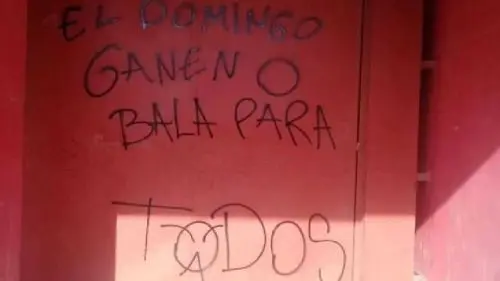 EL DOMINGO
GANEN O
BALA PARA
TODOS